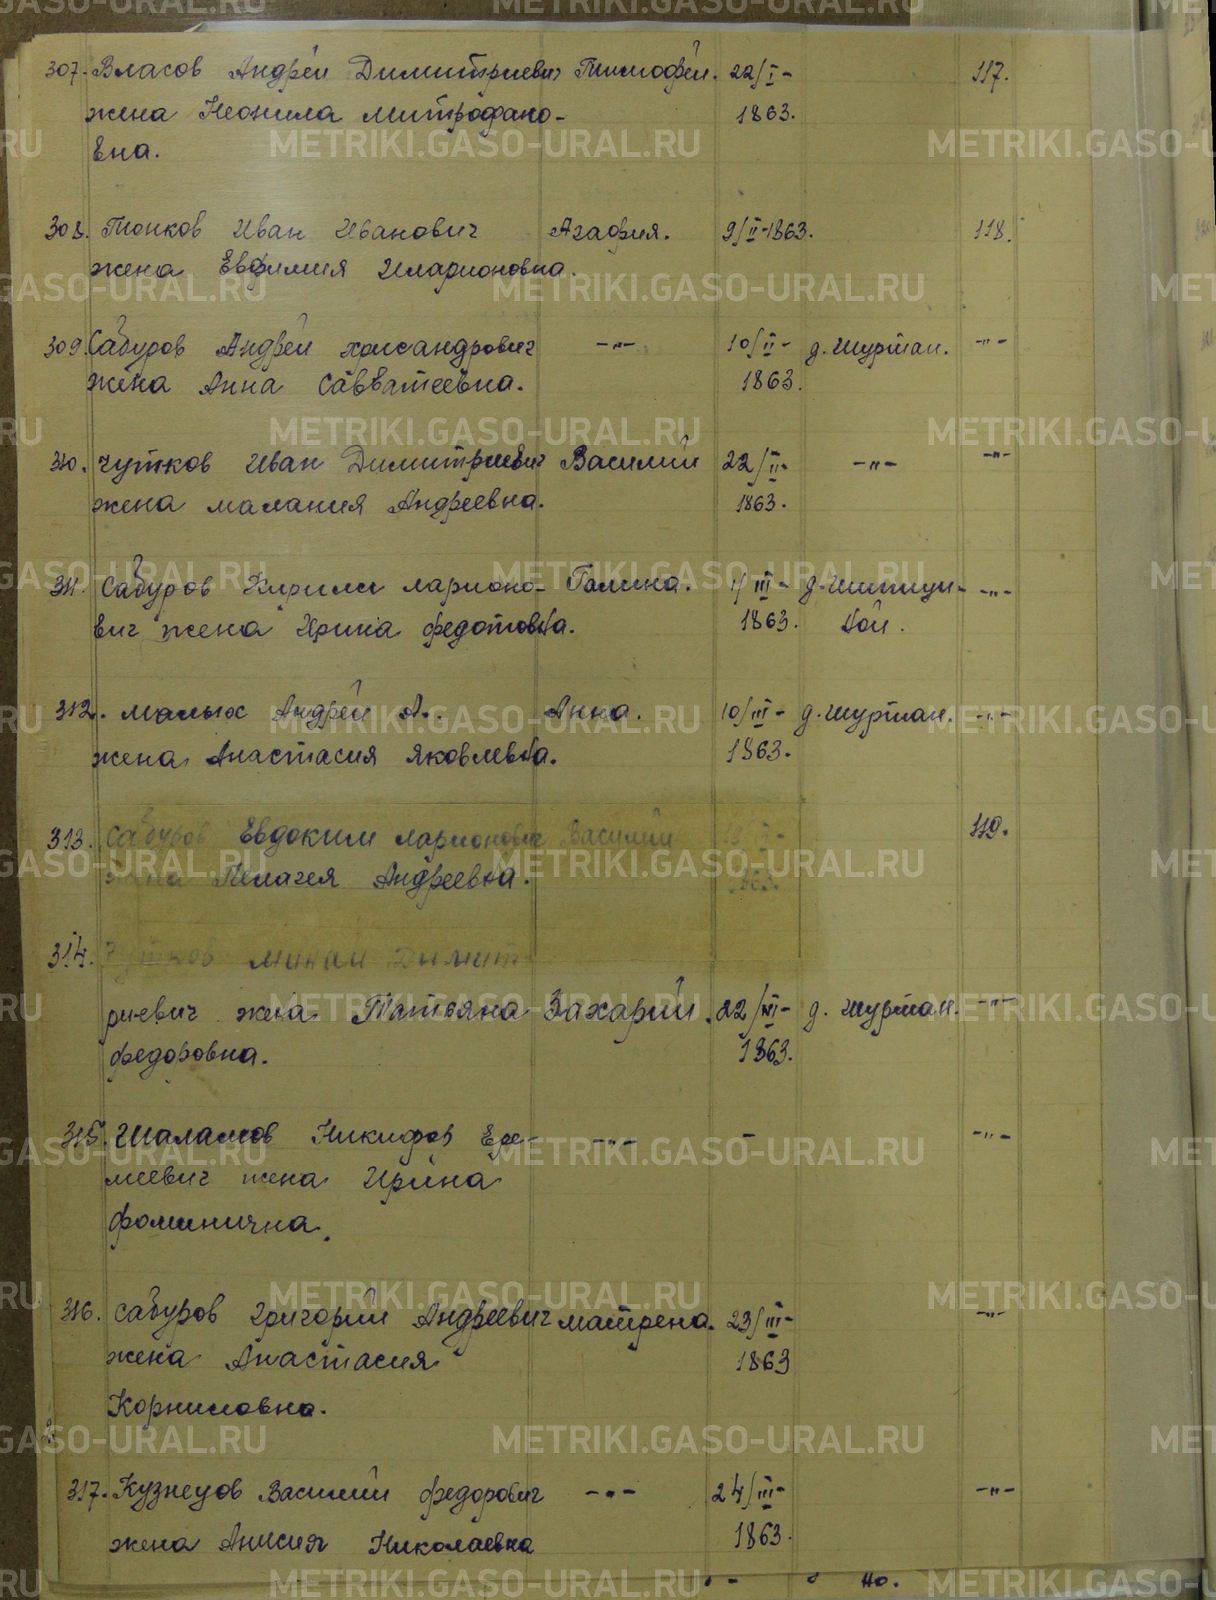 307. Власов Андрей Димитриевич Тимофей. 22/I - 117.
жена Неонила Митрофано- 1863.
вна.
308. Тонков Иван Иванович Агафия. 9/II-1863. 118.
жена Евфимия Иларионовна.
309. Сабуров Андрей Ксисандрович -"- 10/II - д. Шуртан. -"-
жена Анна Савватеевна. 1863.
310. Чутков Иван Димитриевич Василий 22/II - -"- -"-
жена Малания Андреевна. 1863.
311. Сабуров Кирилл Ларионо- Галина. 1/III - д. Шипицын- -"-
вич жена Ирина Федотовна. 1863.
312. Малых Андрей А.. Анна. 10/III - д. Шуртан. -"-
жена Анастасия Яковлевна. 1863.
313. Сабуров Евдоким Ларионович Василий 119.
жена Пелагея Андреевна. 1863.
314. Чутков Минай Димит
риевич жена Татьяна Захарий. 22/III - д. Шуртан. -"-
Федоровна. 1863.
315. Шаламов Никифор Ере- -"- - -"-
меевич жена Ирина
Фоминична.
316. Сабуров Григорий Андреевич Матрена. 23/III - -"-
жена Анастасия 1863
Корниловна.
317. Кузнецов Василий Федорович -"- 24/III - -"-
жена Анисия Николаевна 1863.
METRIKI.GASO-URAL.RU